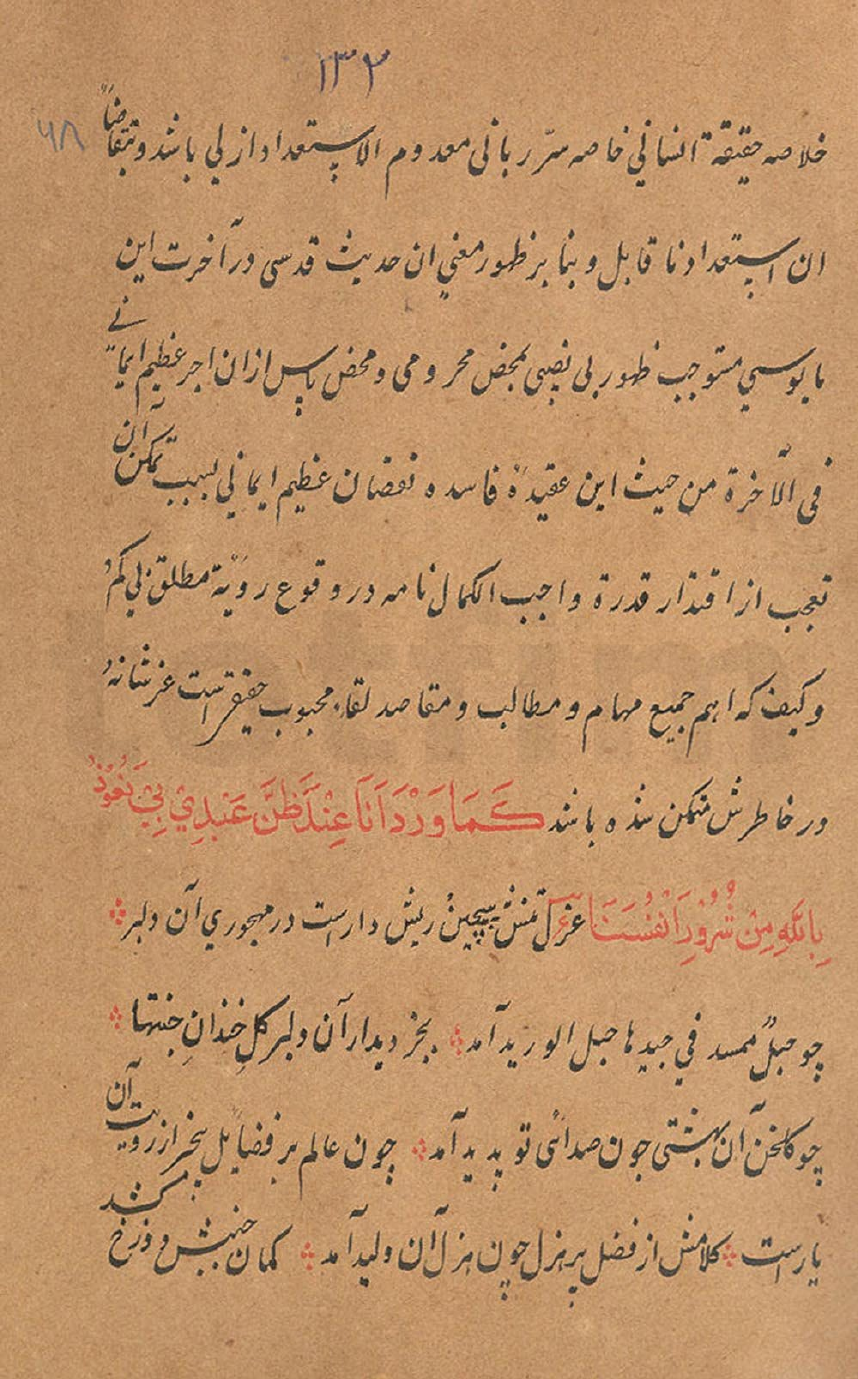 ۱۳۲
۶۸
خلاصه حقیقة انسانی خاصه سرّ ربانی معدوم الاستعداد ازلی باشد و بتقاضاً
ان استعداد نا قابل و بنا بر ظهور معنی ان حدیث قدسی در آخرت این
مایوسی مستوجب ظهور بی نصیبی بمحض محرومی و محض یاس از ان اجر عظیم ایمانی
فی الآخرة من حیث این عقیدهٔ فاسده نقصان عظیم ایمانی بسبب تمکن آن
تعجب از اقتدار قدرة واجب الکمال نامه در وقوع رویة مطلق بی کم
و کیف که اهم جمیع مهام و مطالب و مقاصد لقاء محبوب حقیقی است عز شانه
در خاطرش متمکن شده باشد كَمَا وَرَدَ اَنَا عِنْدَ ظَنِّ عَبْدِيْ بِيْ نَعُوْذُ
بِاللّٰهِ مِنْ شُرُوْرِ اَنْفُسِنَا غزل تنش پیچین ریش دارست در مهجوری آن دلبر
چو حبلٌ ممسد في جیدها حبل الورید آمد بجز دیدار آن دلبر کل خندان جنتها
چو کلخن آن بهشتی جون صدائی تو پدید آمد چون عالم بر فضایل بیخبر از رویت آن
یارست کلامش از فضل پر هزل چون هزل آن ولید آمد کمان جنبش دوزخ کشد